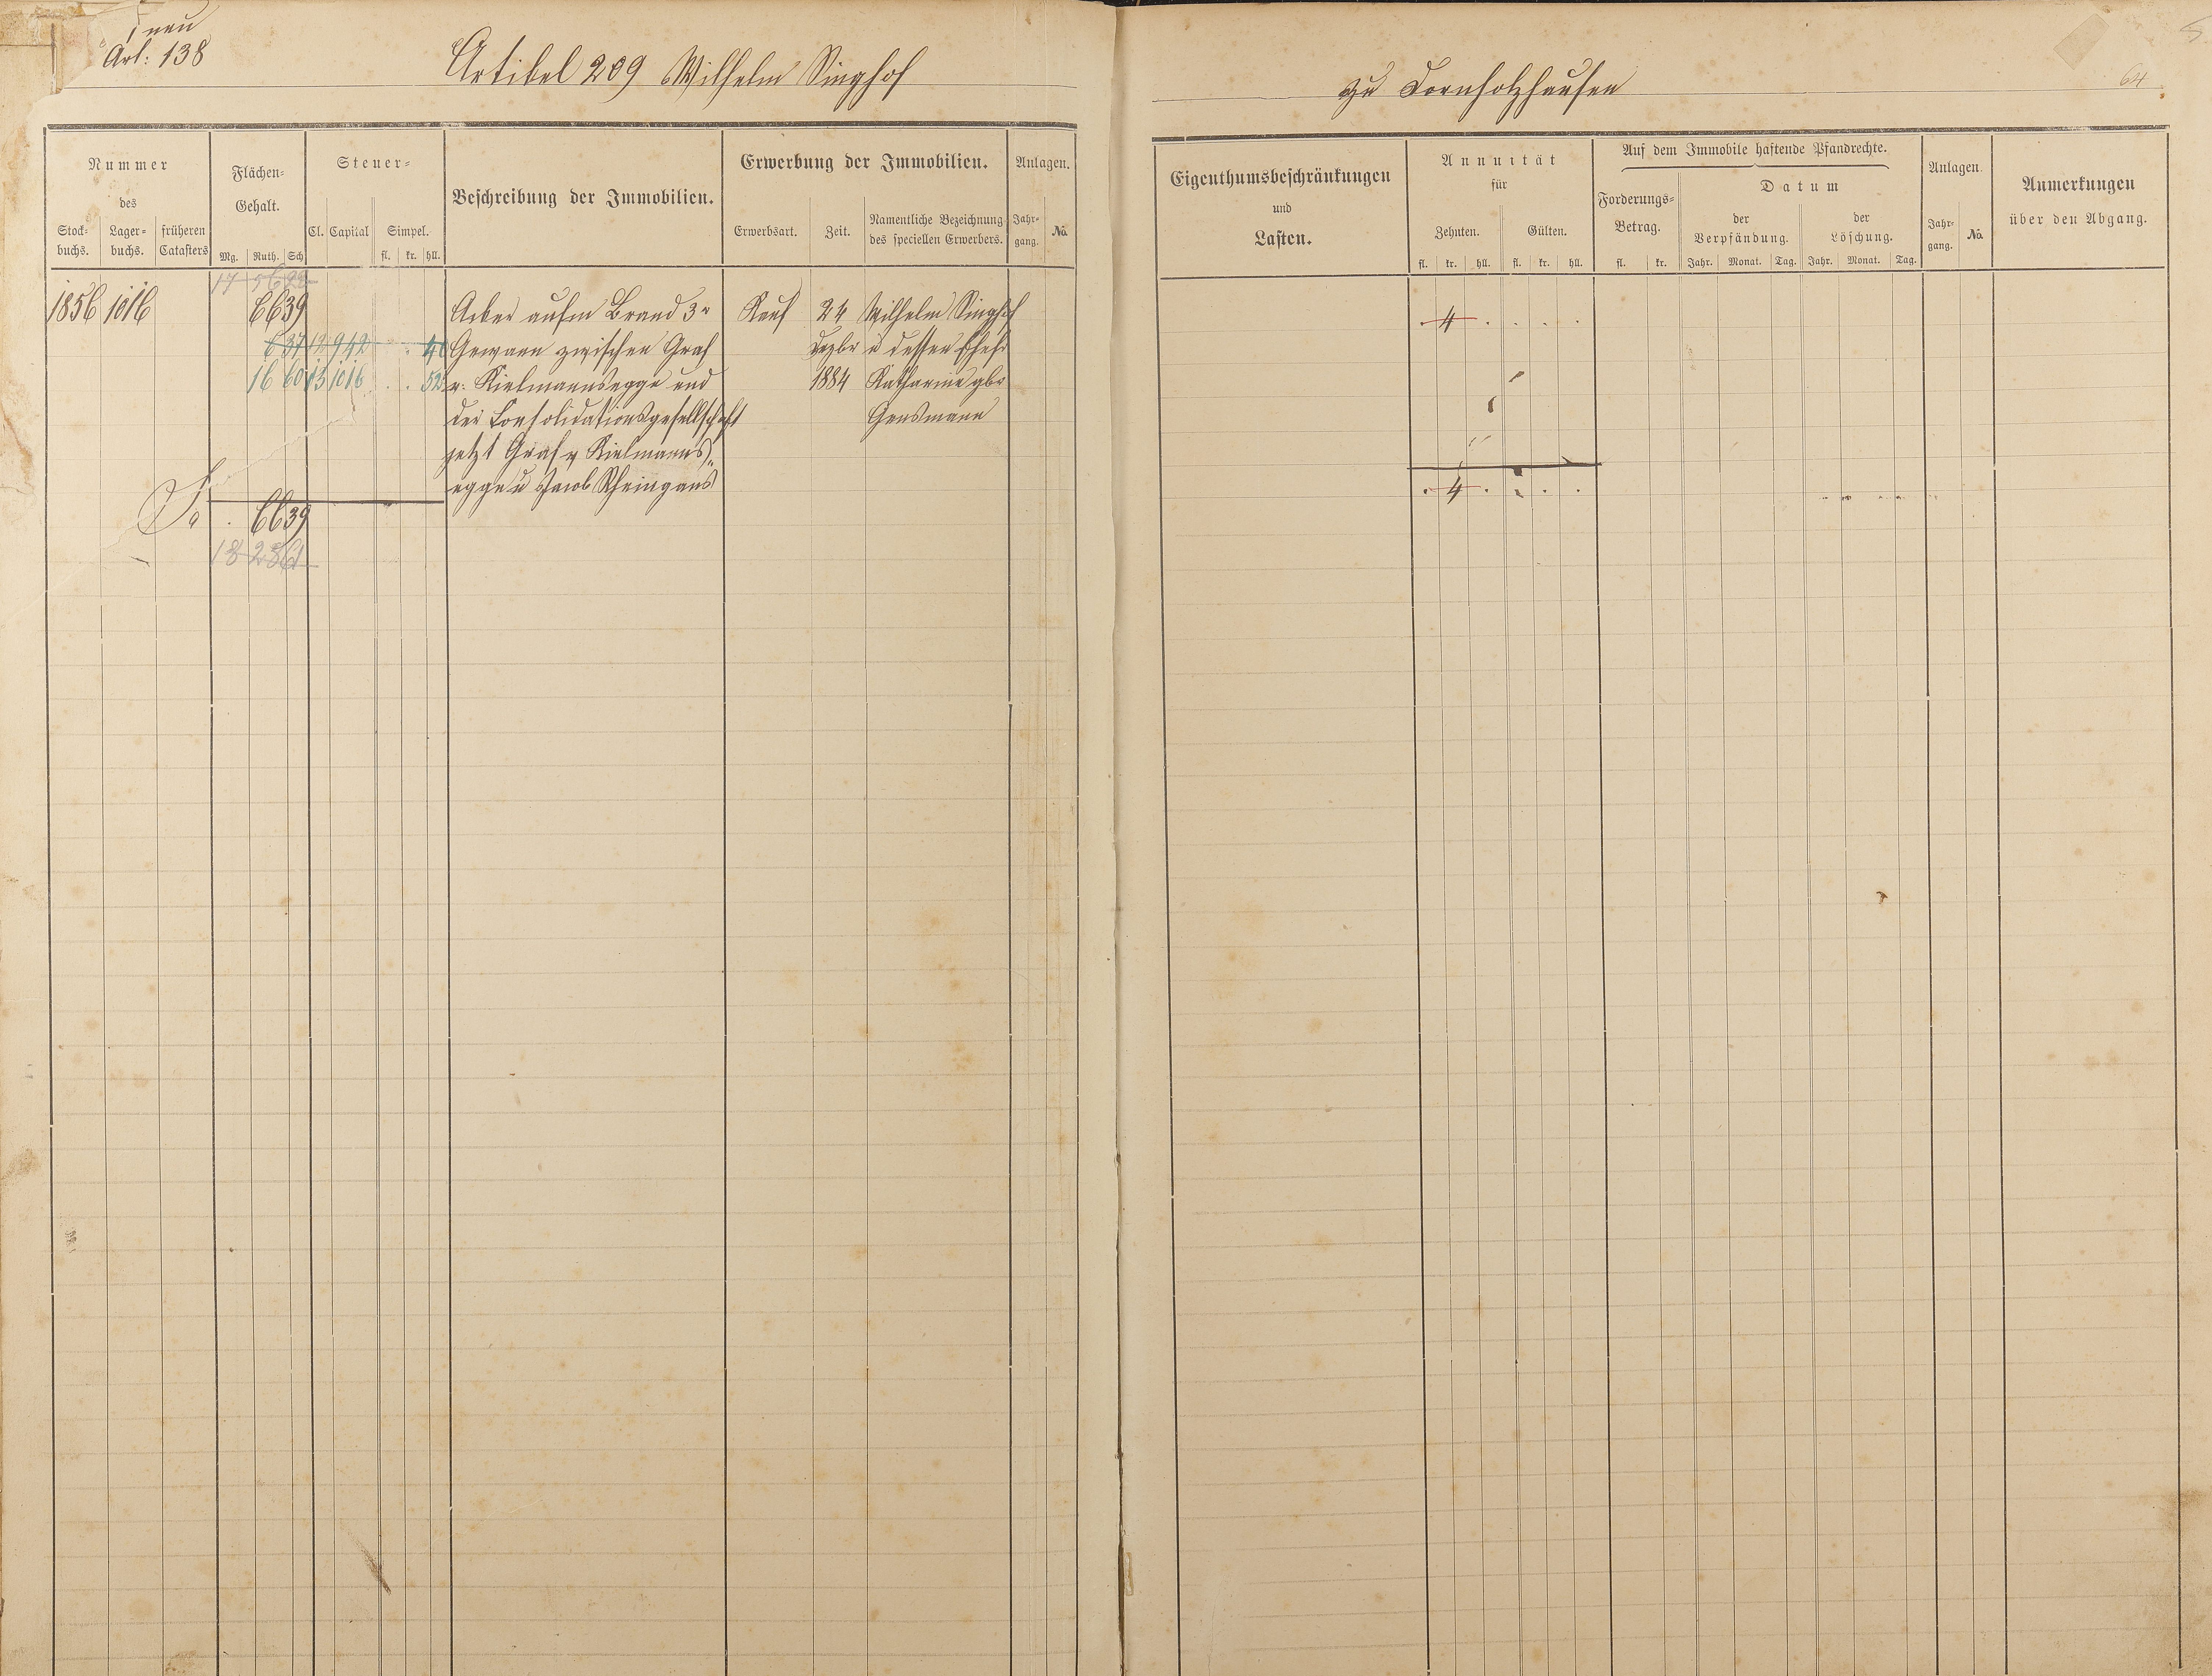 neu
Art: 138
Artikel 209 Wilhelm Singhof
zu Dornholzhausen
64
Nummer
des
Stock-buchs. Lager-buchs. früheren Catasters
Flächen-Gehalt.
Mg. Ruth. Sch.
Steuer-
Cl. Capital Simpel.
fl. kr. hll.
Beschreibung der Immobilien.
Erwerbung der Immobilien.
Erwerbsart. Zeit. Namentliche Bezeichnung des speciellen Erwerbers.
Anlagen.
Jahr-gang. No.
Eigenthumsbeschränkungen
und
Lasten.
Annuität
für
Zehnten. Gülten.
fl. kr. hll. fl. kr. hll.
Auf dem Immobile haftende Pfandrechte.
Forderungs-Betrag.
fl. kr.
Datum
der Verpfändung. der Löschung.
Jahr. Monat. Tag. Jahr. Monat. Tag.
Anlagen.
Jahr-gang. No.
Anmerkungen
über den Abgang.
1856 1016 6639 Acker aufm Brand 3r Kauf 24 Wilhelm Singhof 4
637 12 942 40 Gewann zwischen Graf Dezbr u dessen Ehefr
16 60 13 1016 52 v. Kielmannsegge und 1884 Katharine gbr
der Consolidationsgesellschaft Gensmann
jetzt Graf v Kielmanns-
egge u Jacob Rheingans
6639 4
18 2361